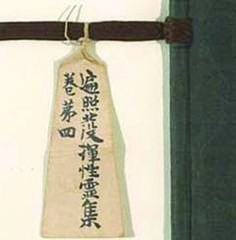 遍照発揮性霊集
巻第四